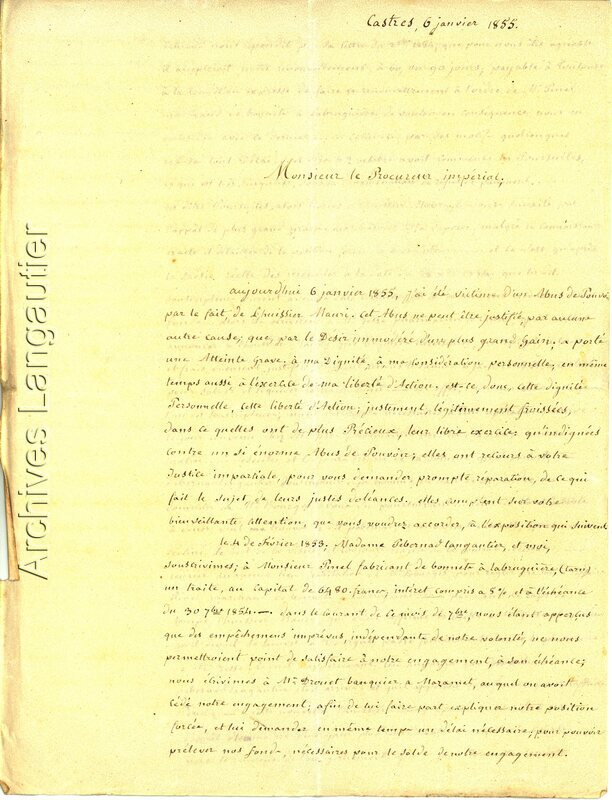 Castres, 6 janvier 1855.
Monsieur le Procureur impérial,
aujourdhui 6 janvier 1855, j'ai été victime d'un Abus de Pouvoir
par le fait, de l'huissier Mauri. Cet Abus ne peut être justifié, par aucune
autre cause, que, par le Desir immodéré d'un plus grand Gain. a porté
une Atteinte Grave, à ma Dignité, à ma Considération personnelle, en même
temps aussi, à l'exercice de ma liberté d'Action, est-ce, donc, cette dignité
Personnelle, cette liberté d'Action; justement, légitimement froissées,
dans ce quelles ont de plus Précieux, leur libre exercice: qu'indignées
contre un si énorme Abus de Pouvoir; elles ont recours à votre
Justice impartiale, pour vous demander prompte réparation, de ce qui
fait le sujet, de leurs justes doléances. elles comptent sur votre
bienveillante, Attention, que vous voudrez accorder, à l'exposition qui suivent
le 4 de Février 1853. Madame Pibernad Langautier, et moi,
souscrivimes; à Monsieur Pinel fabricant de bonnets à labruguière, (tarn)
un traite, au capital de 6480. francs, intéret compris a 5% et à l'échéance
du 30 7bre 1854. — dans le courant de ce mois de 7bre, nous étant apperçus
que des empêchemens imprévus, indépendants de notre volonté, ne nous
permettroient point de satisfaire à notre engagement, à son échéance;
nous écrivimes à Mr. Drouet banquier a Mazamet, auquel on avoit
cédé notre engagement; afin de lui faire part, expliquer notre position
forcée, et lui demander en même temps un délai nécessaire, pour pouvoir
prélever nos fonds, nécessaires pour le solde de notre engagement.
Archives Langautier